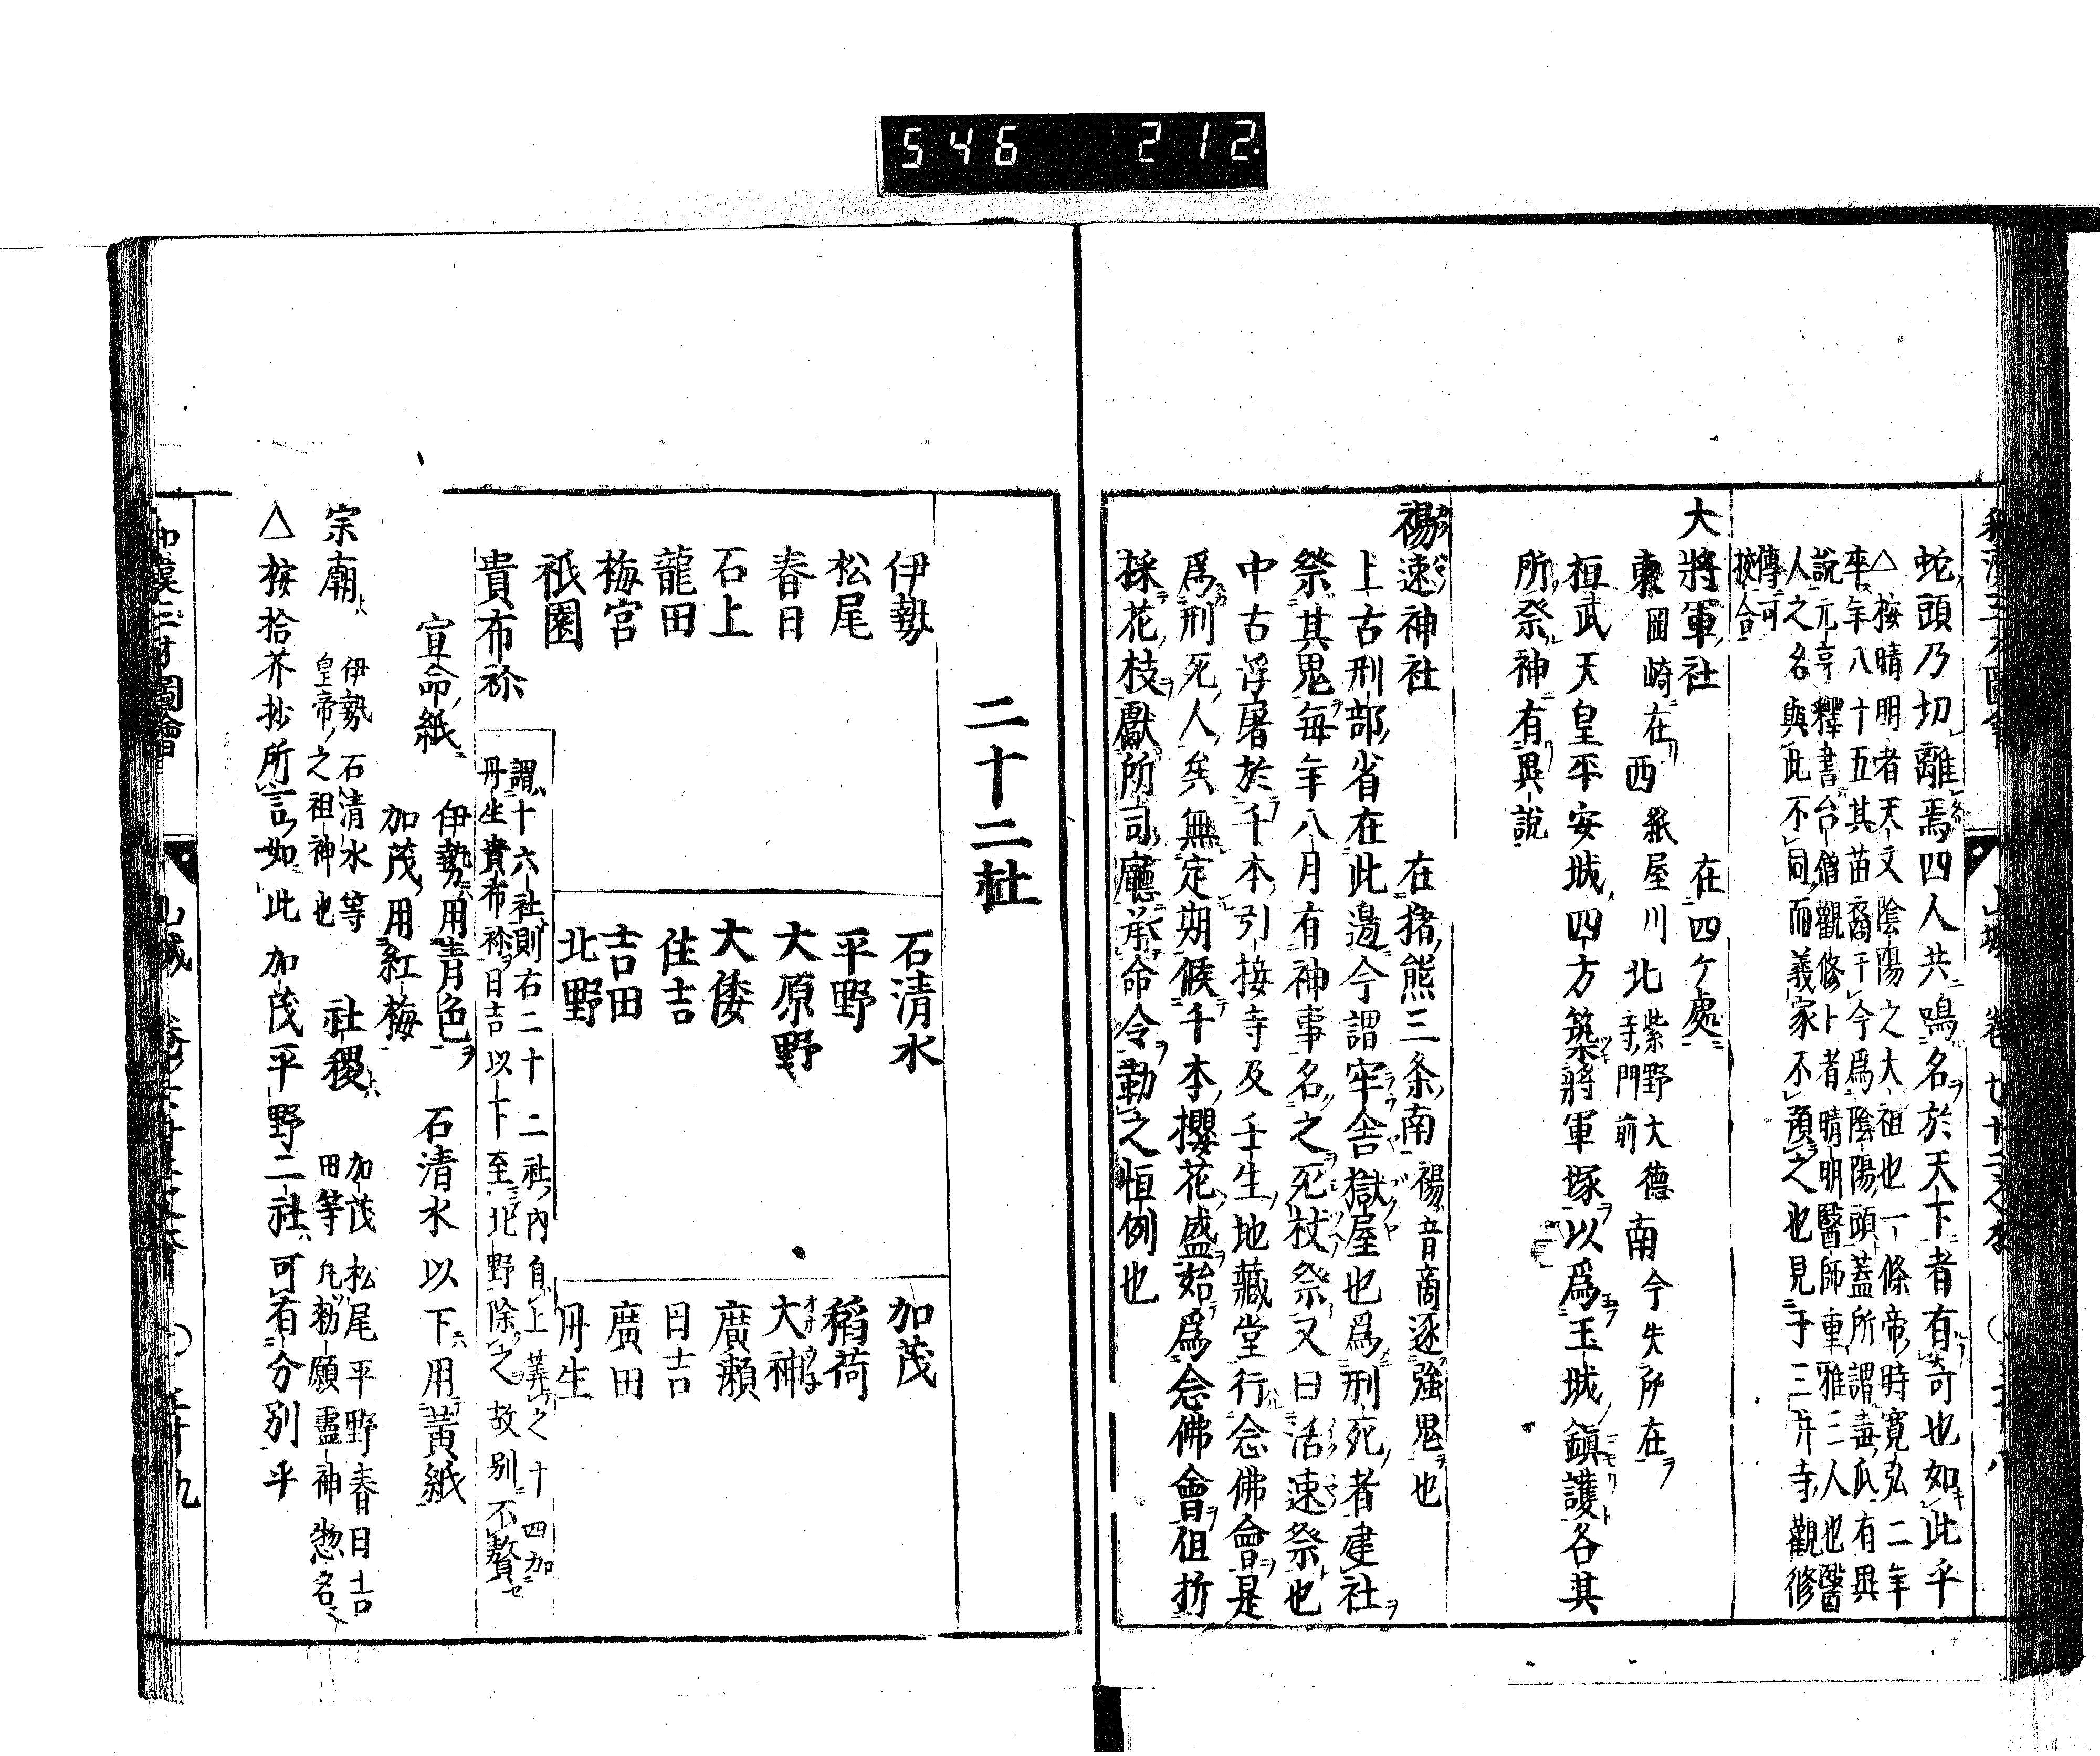 546 212
蛇頭乃切離焉四人共鳴名於天下者有奇也如此乎
△按晴明者天文陰陽之大祖也一條帝時寛弘二年
卒年八十五其苗裔于今爲陰陽頭蓋所謂毒瓜有異
説元亨釋書台僧觀修卜者晴明醫師重雅三人也醫
人之名與此不同而義家不預之也見于三井寺觀修
傳可
挍合
大將軍社 在四ケ處
東岡崎在 西紙屋川 北紫野大德寺門前 南今失所在
桓武天皇平安城四方築將軍塚以爲王城鎮護各其
所祭神有異説
禓速神社 在猪熊三条南 禓音商逐強鬼也
上古刑部省在此邉今謂牢舎獄屋也爲刑死者建社
祭其鬼毎年八月有神事名之死杖祭又曰活速祭也
中古浮屠於千本引接寺及壬生地藏堂行念佛會是
爲刑死人矣無定期候千本櫻花盛始爲念佛會但折
採花枝獻所司廳承命令勤之恒例也
二十二社
伊勢 石清水 加茂
松尾 平野 稻荷
春日 大原野 大神
石上 大倭 廣瀬
龍田 住吉 日吉
梅宮 吉田 廣田
祇園 北野 丹生
貴布祢
謂十六社則右二十二社内自上等之十四加
丹生貴布祢日吉以下至北野除之故別不贅
宣命紙 伊勢用青色 石清水以下用黄紙
加茂用紅梅
宗廟 伊勢石清水等皇帝之祖神也 社稷 加茂松尾平野春日吉田等凡勅願靈神惣名
△按拾芥抄所言如此加茂平野二社可有分別乎
和漢三才圖會 山城